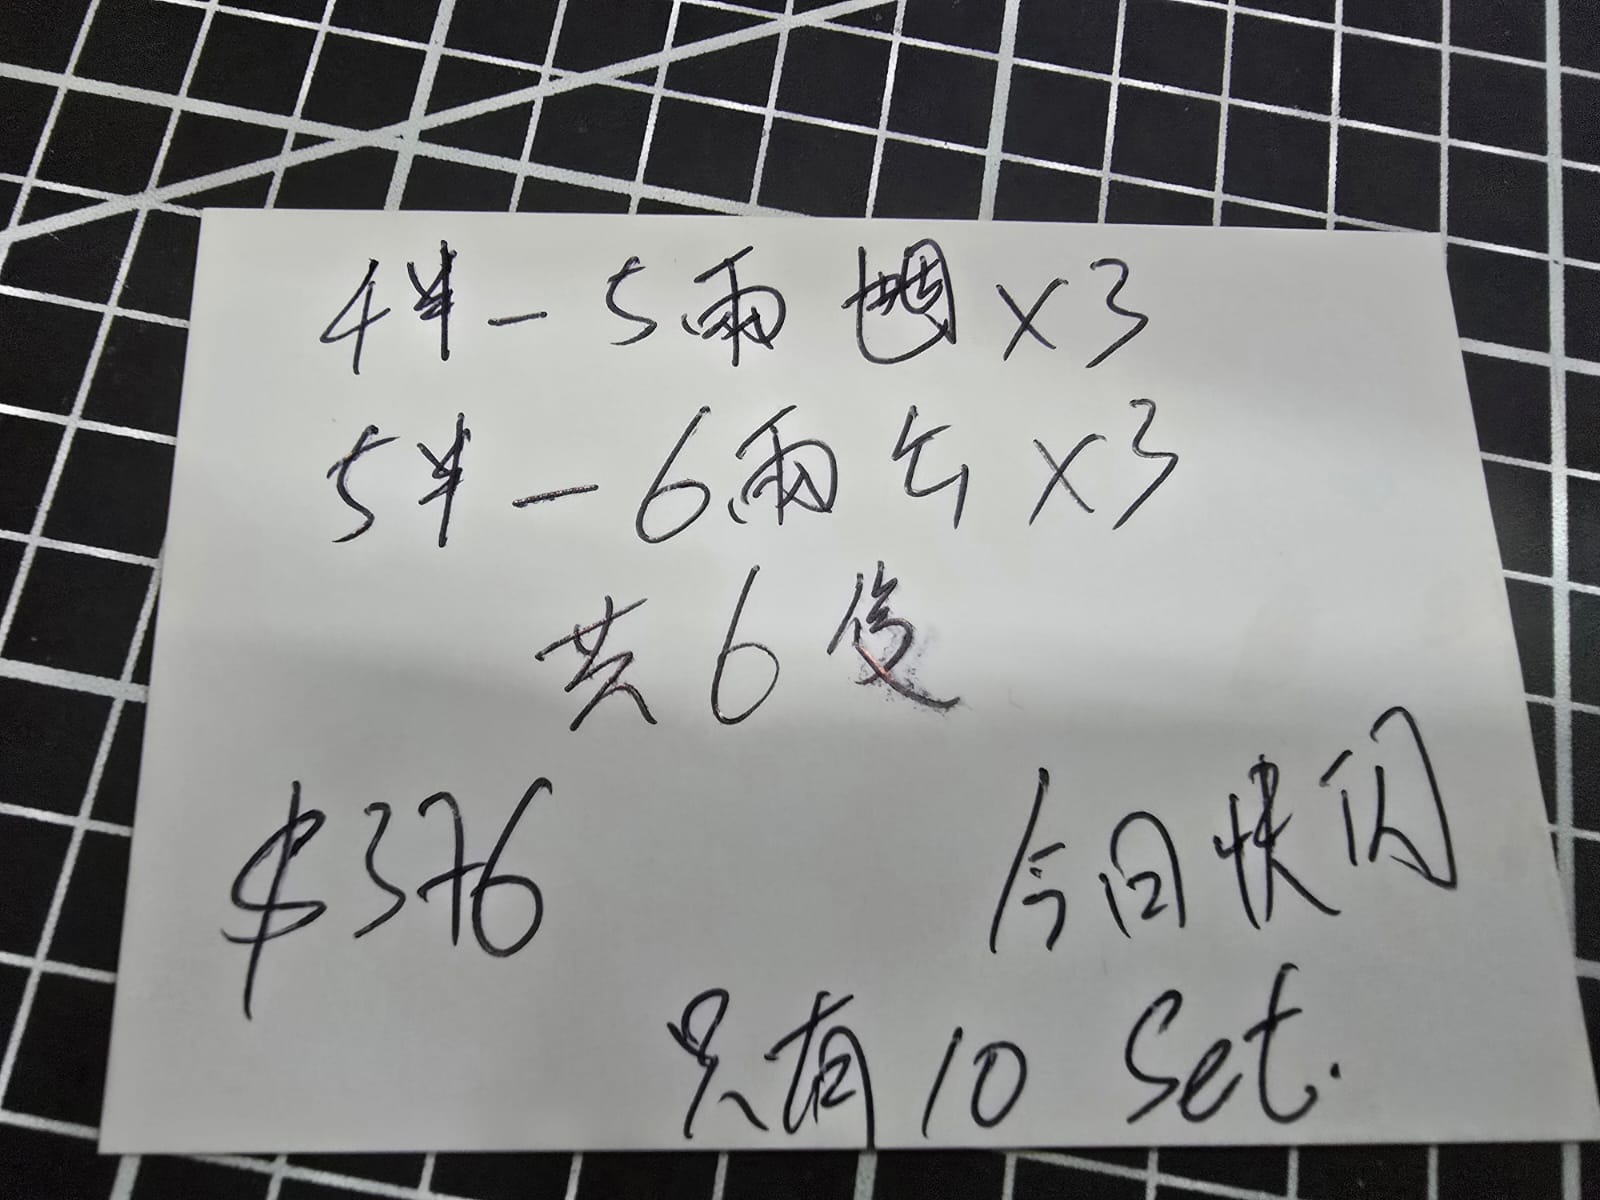 4半-5兩 x3
5半-6兩公x3
共6隻
$376 今日快闪
只有10 Set.